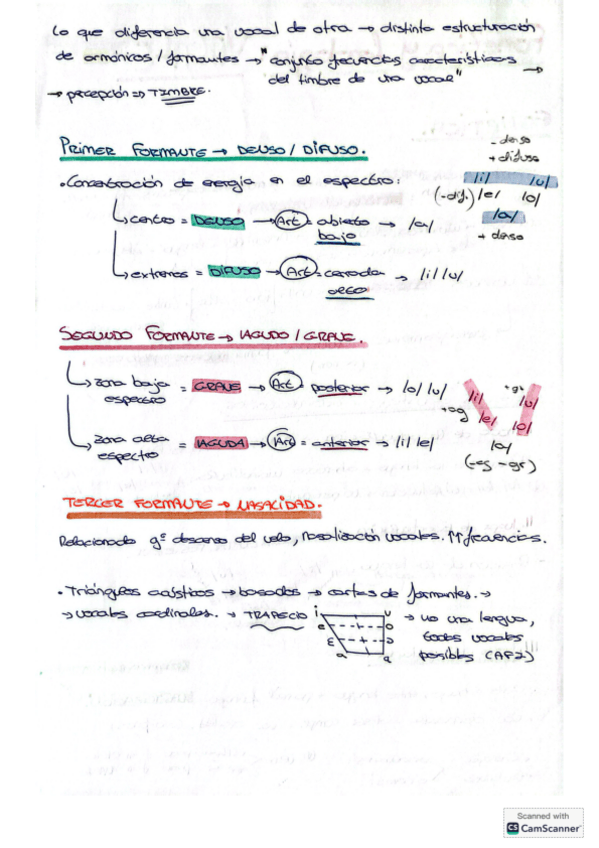 Lo que diferencia una vocal de otra → distinta estructuración
de armónicos / formantes → "conjunto frecuencias características →
del timbre de una vocal"
→ percepción => TIMBRE.
PRIMER FORMANTE → DENSO / DIFUSO.
- denso
+ difuso
• Concentración de energía en el espectro:
/i/ /u/
(-dif.) /e/ /o/
/a/
+ denso
centro = DENSO → Art = abierto → /a/
bajo
extremos = DIFUSO → Art = cerrada → /i/ /u/
alto
SEGUNDO FORMANTE → AGUDO / GRAVE.
zona baja = GRAVE → Art = posterior → /o/ /u/
espectro
+ gr
/i/ /u/
+ ag /e/ /o/
/a/
(-ag -gr)
zona alta = AGUDA → Art = anterior → /i/ /e/
espectro
TERCER FORMANTE → NASALIDAD.
Relacionado gº descenso del velo, nasalización vocales. ↑↑ frecuencias.
• Triángulos acústicos → basados → cartas de formantes. →
→ vocales cardinales. → TRAPECIO
i u
e o
ɛ ɔ
a ɑ
→ no una lengua,
todas vocales
posibles (AFI)
Scanned with
CS CamScanner